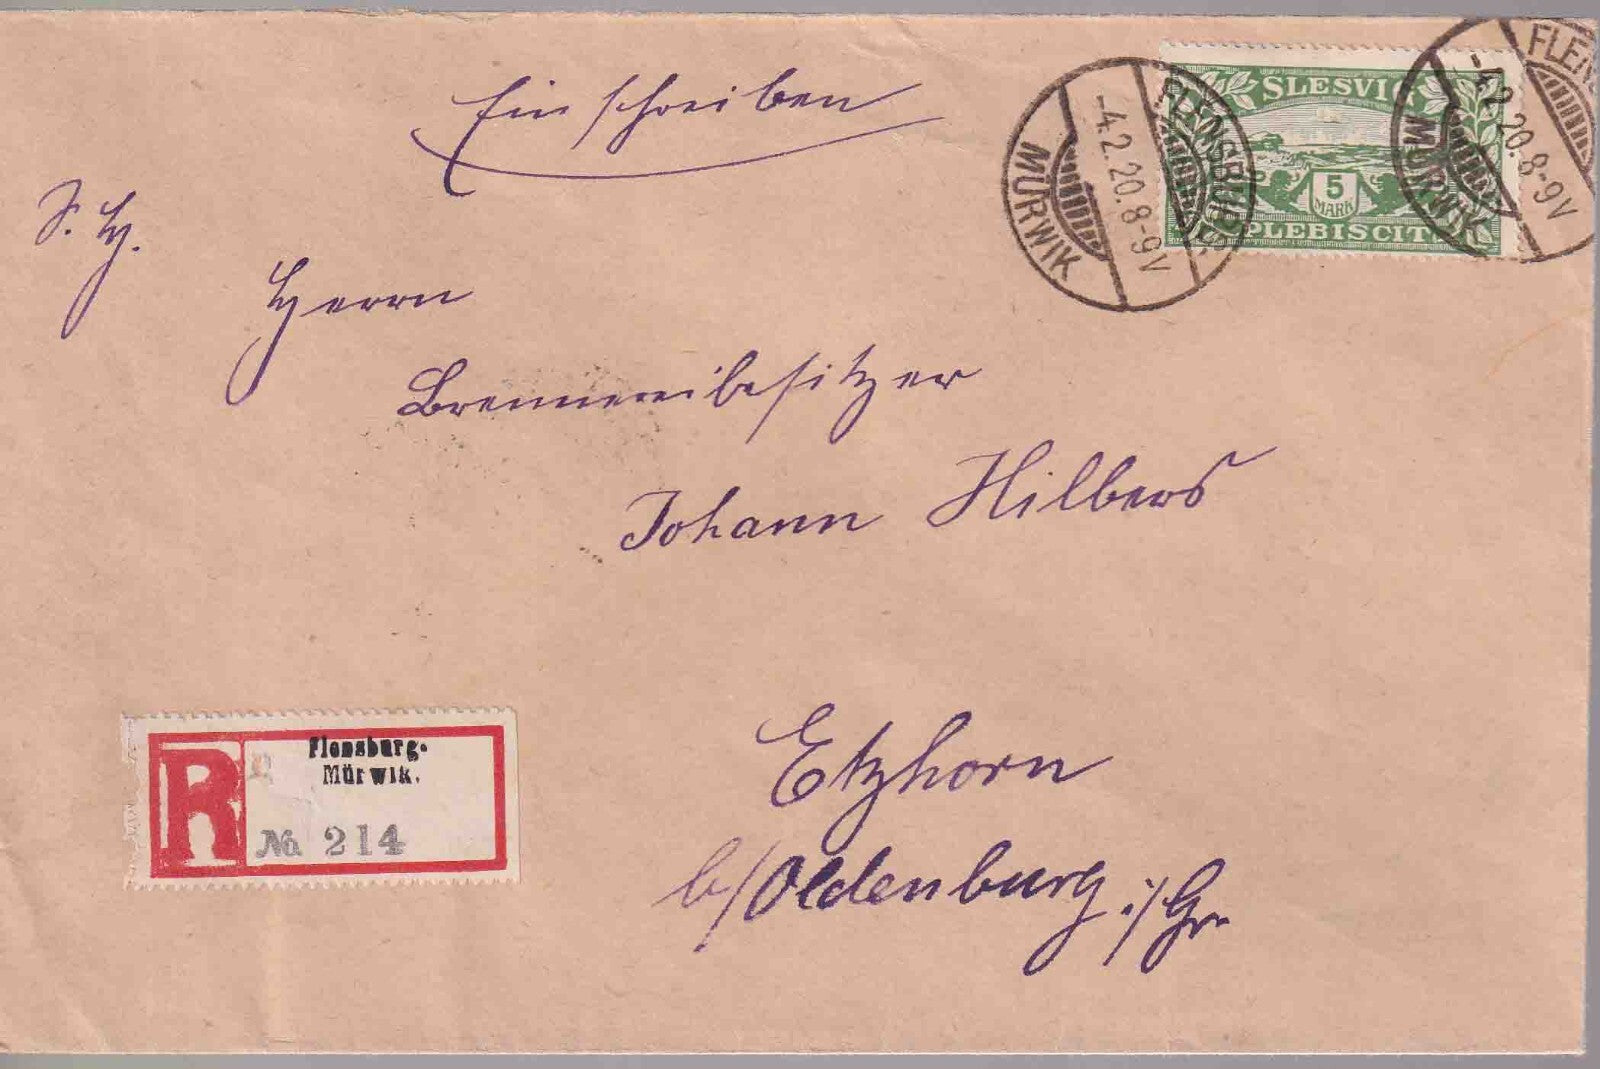 Einschreiben
S. H.
Herrn
Brennereibesitzer
Johann Hilbers
Etzhorn
b/Oldenburg i/Gr.
SLESVIG
5
MARK
PLEBISCIT
FLENSBURG
-4.2.20.8-9V
MÜRWIK
FLEN
-4.2.20.8-9V
MÜRWIK
R
Flensburg-
Mürwik.
No 214